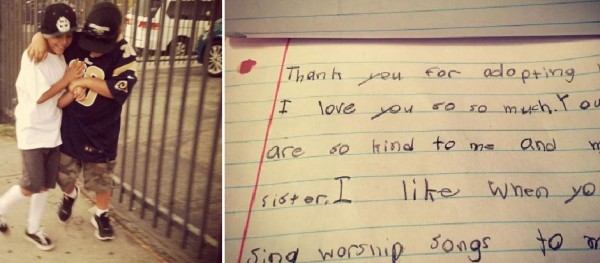 Thank you for adopting
I love you so so much. You
are so kind to me and
sister. I like when yo
sing worship songs to m